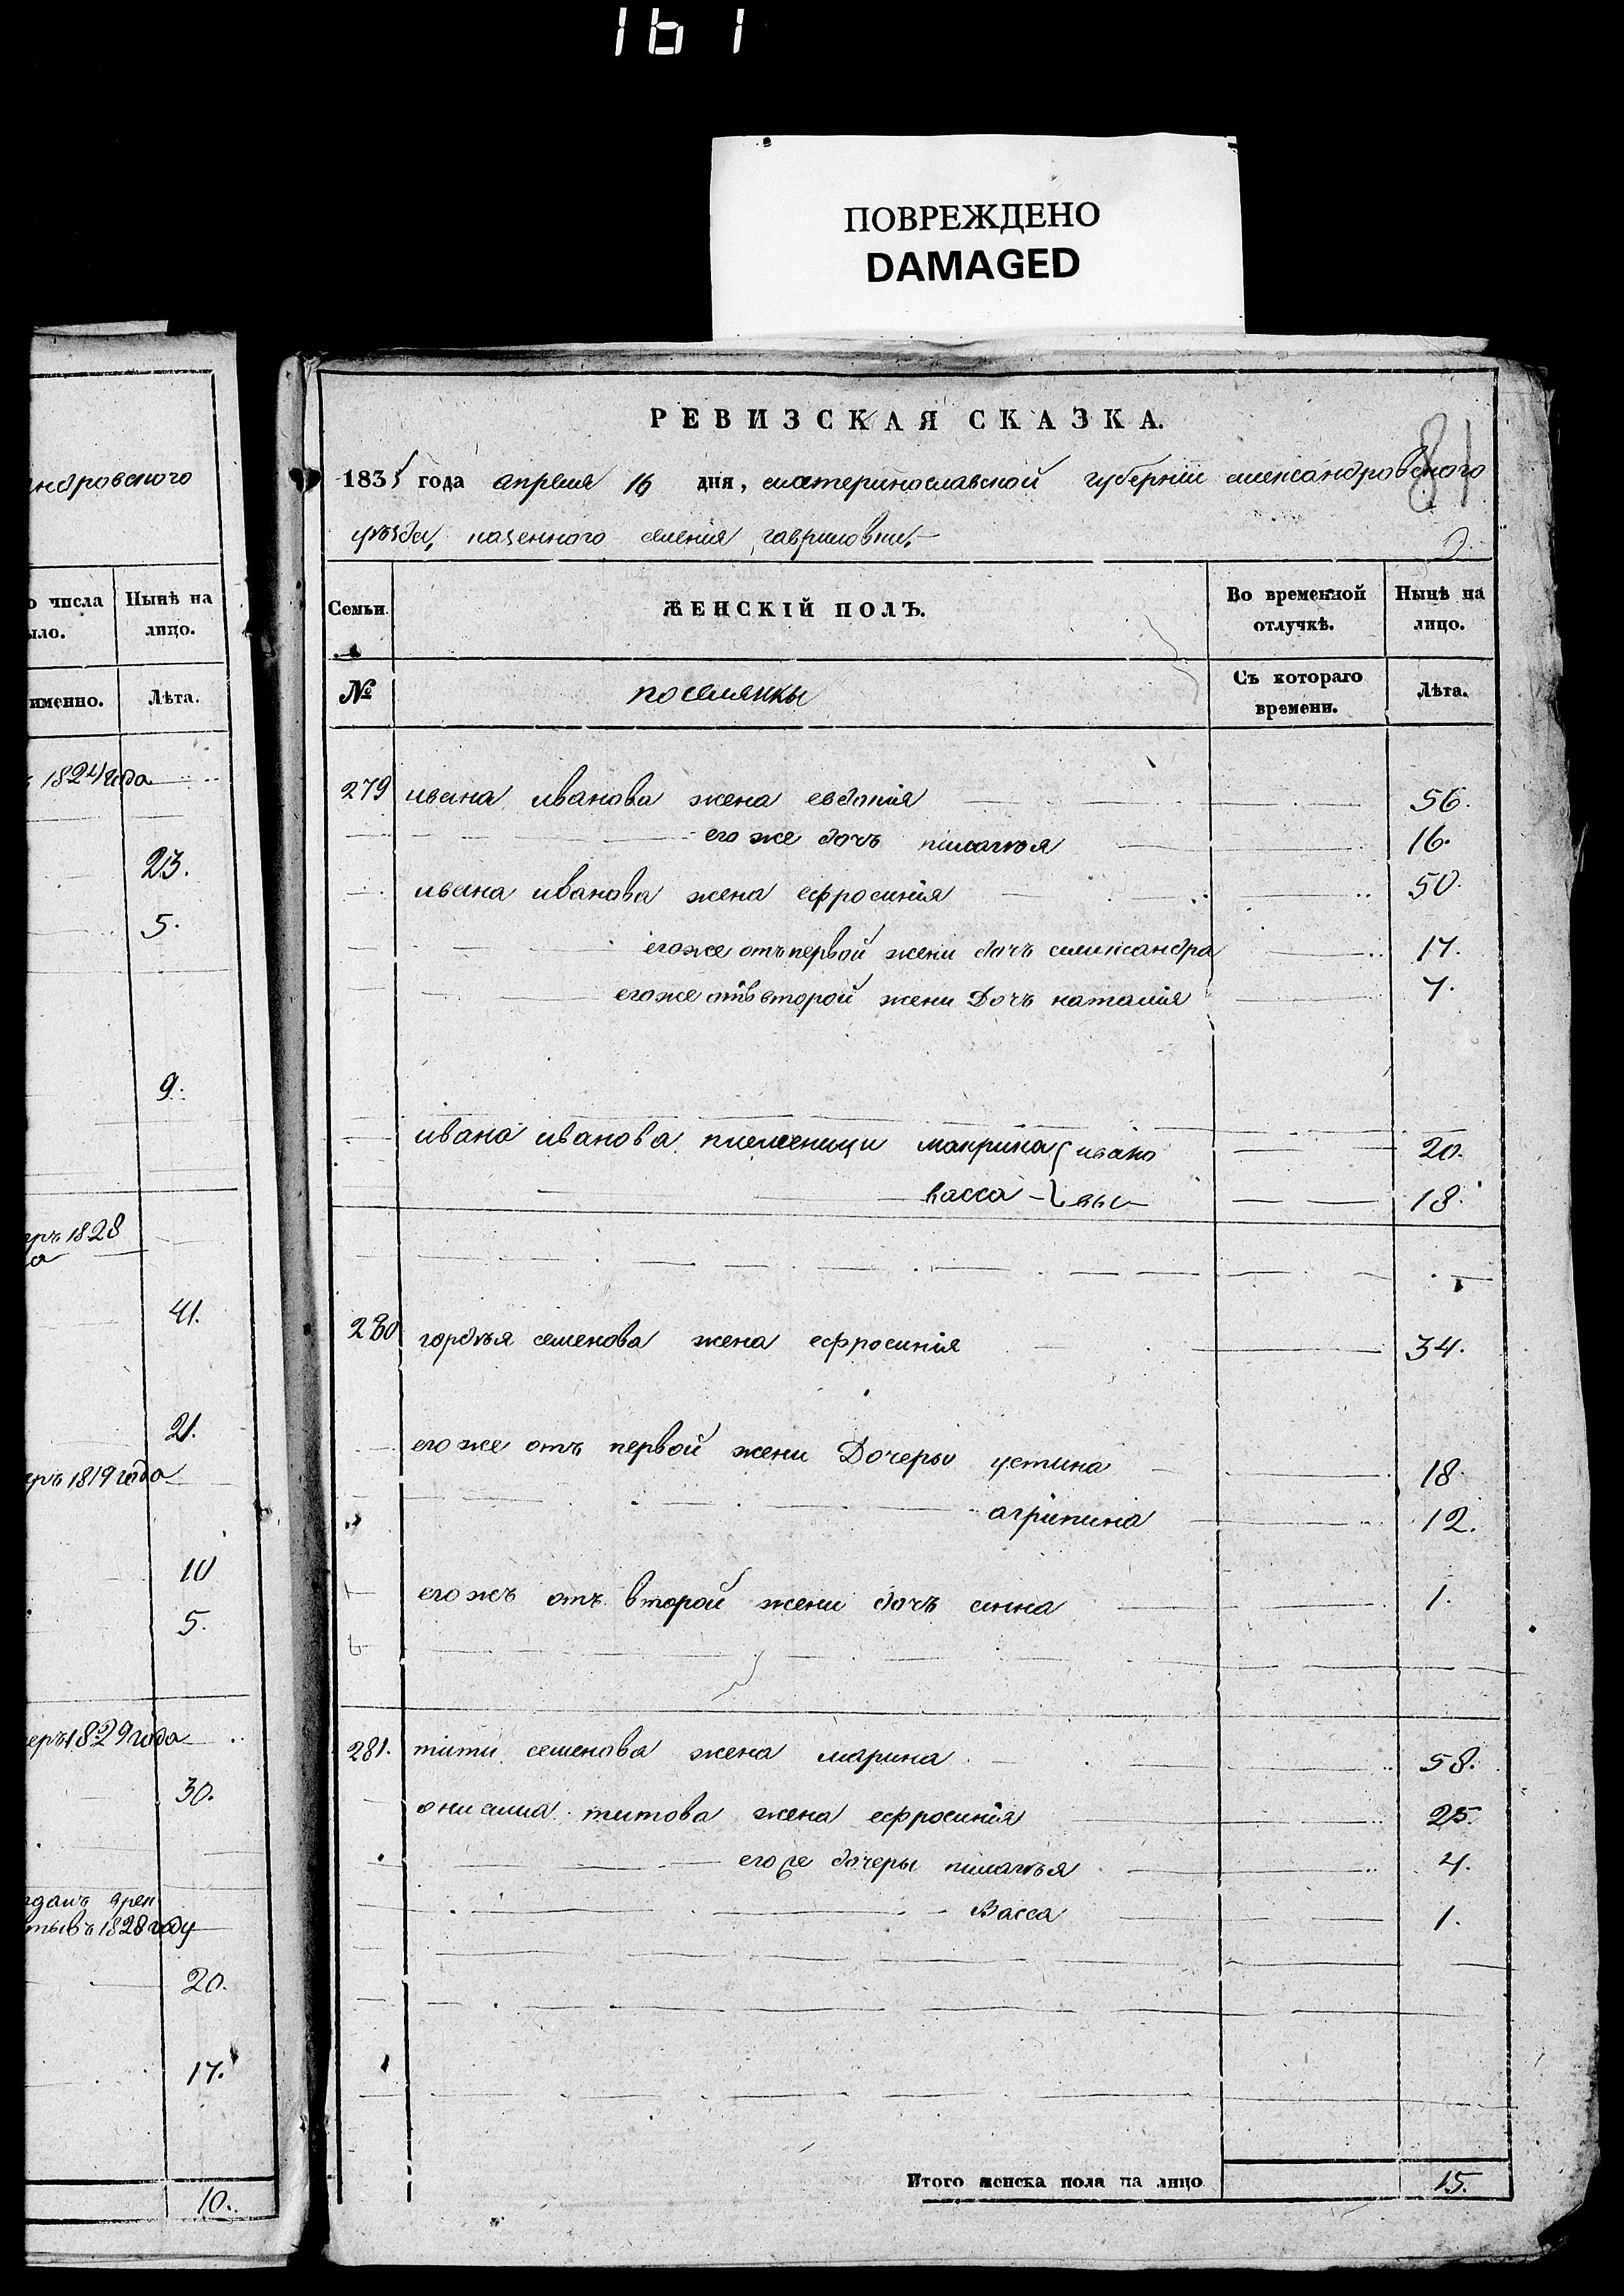 161
ПОВРЕЖДЕНО
DAMAGED
ндровского
о числа
ыло.
Нынѣ на
лицо.
именно.
Лѣта.
1824 года
23.
5.
9.
1828
41.
21.
1819 года
10
5.
1829 года
30.
въ 1828 году
20.
17.
10.
81
РЕВИЗСКАЯ СКАЗКА.
1835 года апреля 16 дня, екатеринославской губерніи александровского
уѣзда, казенного селенія гавриловки.
Семьи.
ЖЕНСКІЙ ПОЛЪ.
Во временной
отлучкѣ.
Нынѣ на
лицо.
№
поселянкы
Съ котораго
времени.
Лѣта.
279 ивана иванова жена евдокия 56.
его же дочъ пилагѣя 16.
ивана иванова жена ефросинія 50.
его же отъ первой жени дочъ александра 17.
его же отъ второй жени Дочъ наталия 7.
ивана иванова племеници макрина ивано 20.
васса вы 18.
280 гордѣя семенова жена ефросинія 34.
его же отъ первой жени Дочеры устина 18.
агрипина 12.
его жъ отъ второй жени дочъ анна 1.
281. тита семенова жена марина 58.
онисима титова жена ефросинія 25.
его же дочеры пилагѣя 4.
Васса 1.
Итого женска пола на лицо 15.